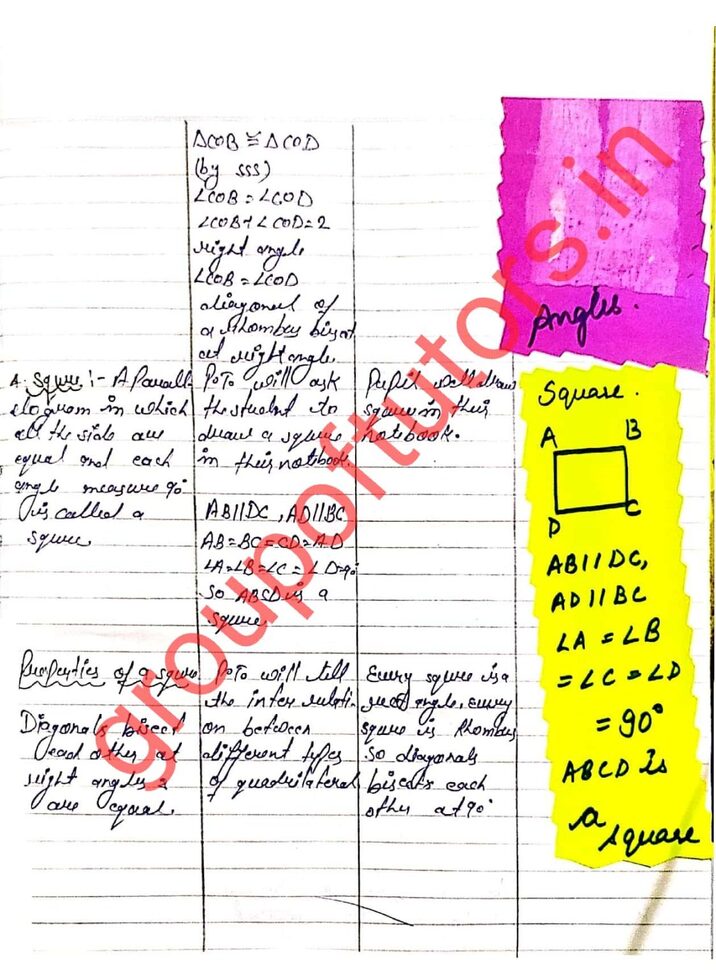 ΔCOB ≅ ΔCOD
(by SSS)
∠COB = ∠COD
∠COB + ∠COD = 2
right angle
∠COB = ∠COD
diagonal of
a Rhombus bisect
at right angle.
4. Squre :- A Parall-
elogram in which
all the side are
equal and each
angle measure 90°
is called a
squre
P.T will ask
the student to
draw a square
in their notebook.
AB || DC , AD || BC
AB = BC = CD = AD
∠A = ∠B = ∠C = ∠D = 90°
so ABCD is a
squre
Pupil will draw
square in their
notebook.
Properties of a squre
Diagonals bisect
each other at
right angles &
are equal
will tell
the inter relati-
on between
different types
of quadrilateral
Every squre is a
rect angle, every
squre is Rhombus
so diagonals
bisects each
other at 90°
Angles.
Square.
A B
D C
AB || DC,
AD || BC
∠A = ∠B
= ∠C = ∠D
= 90°
ABCD is
a
square
groupoftutors.in